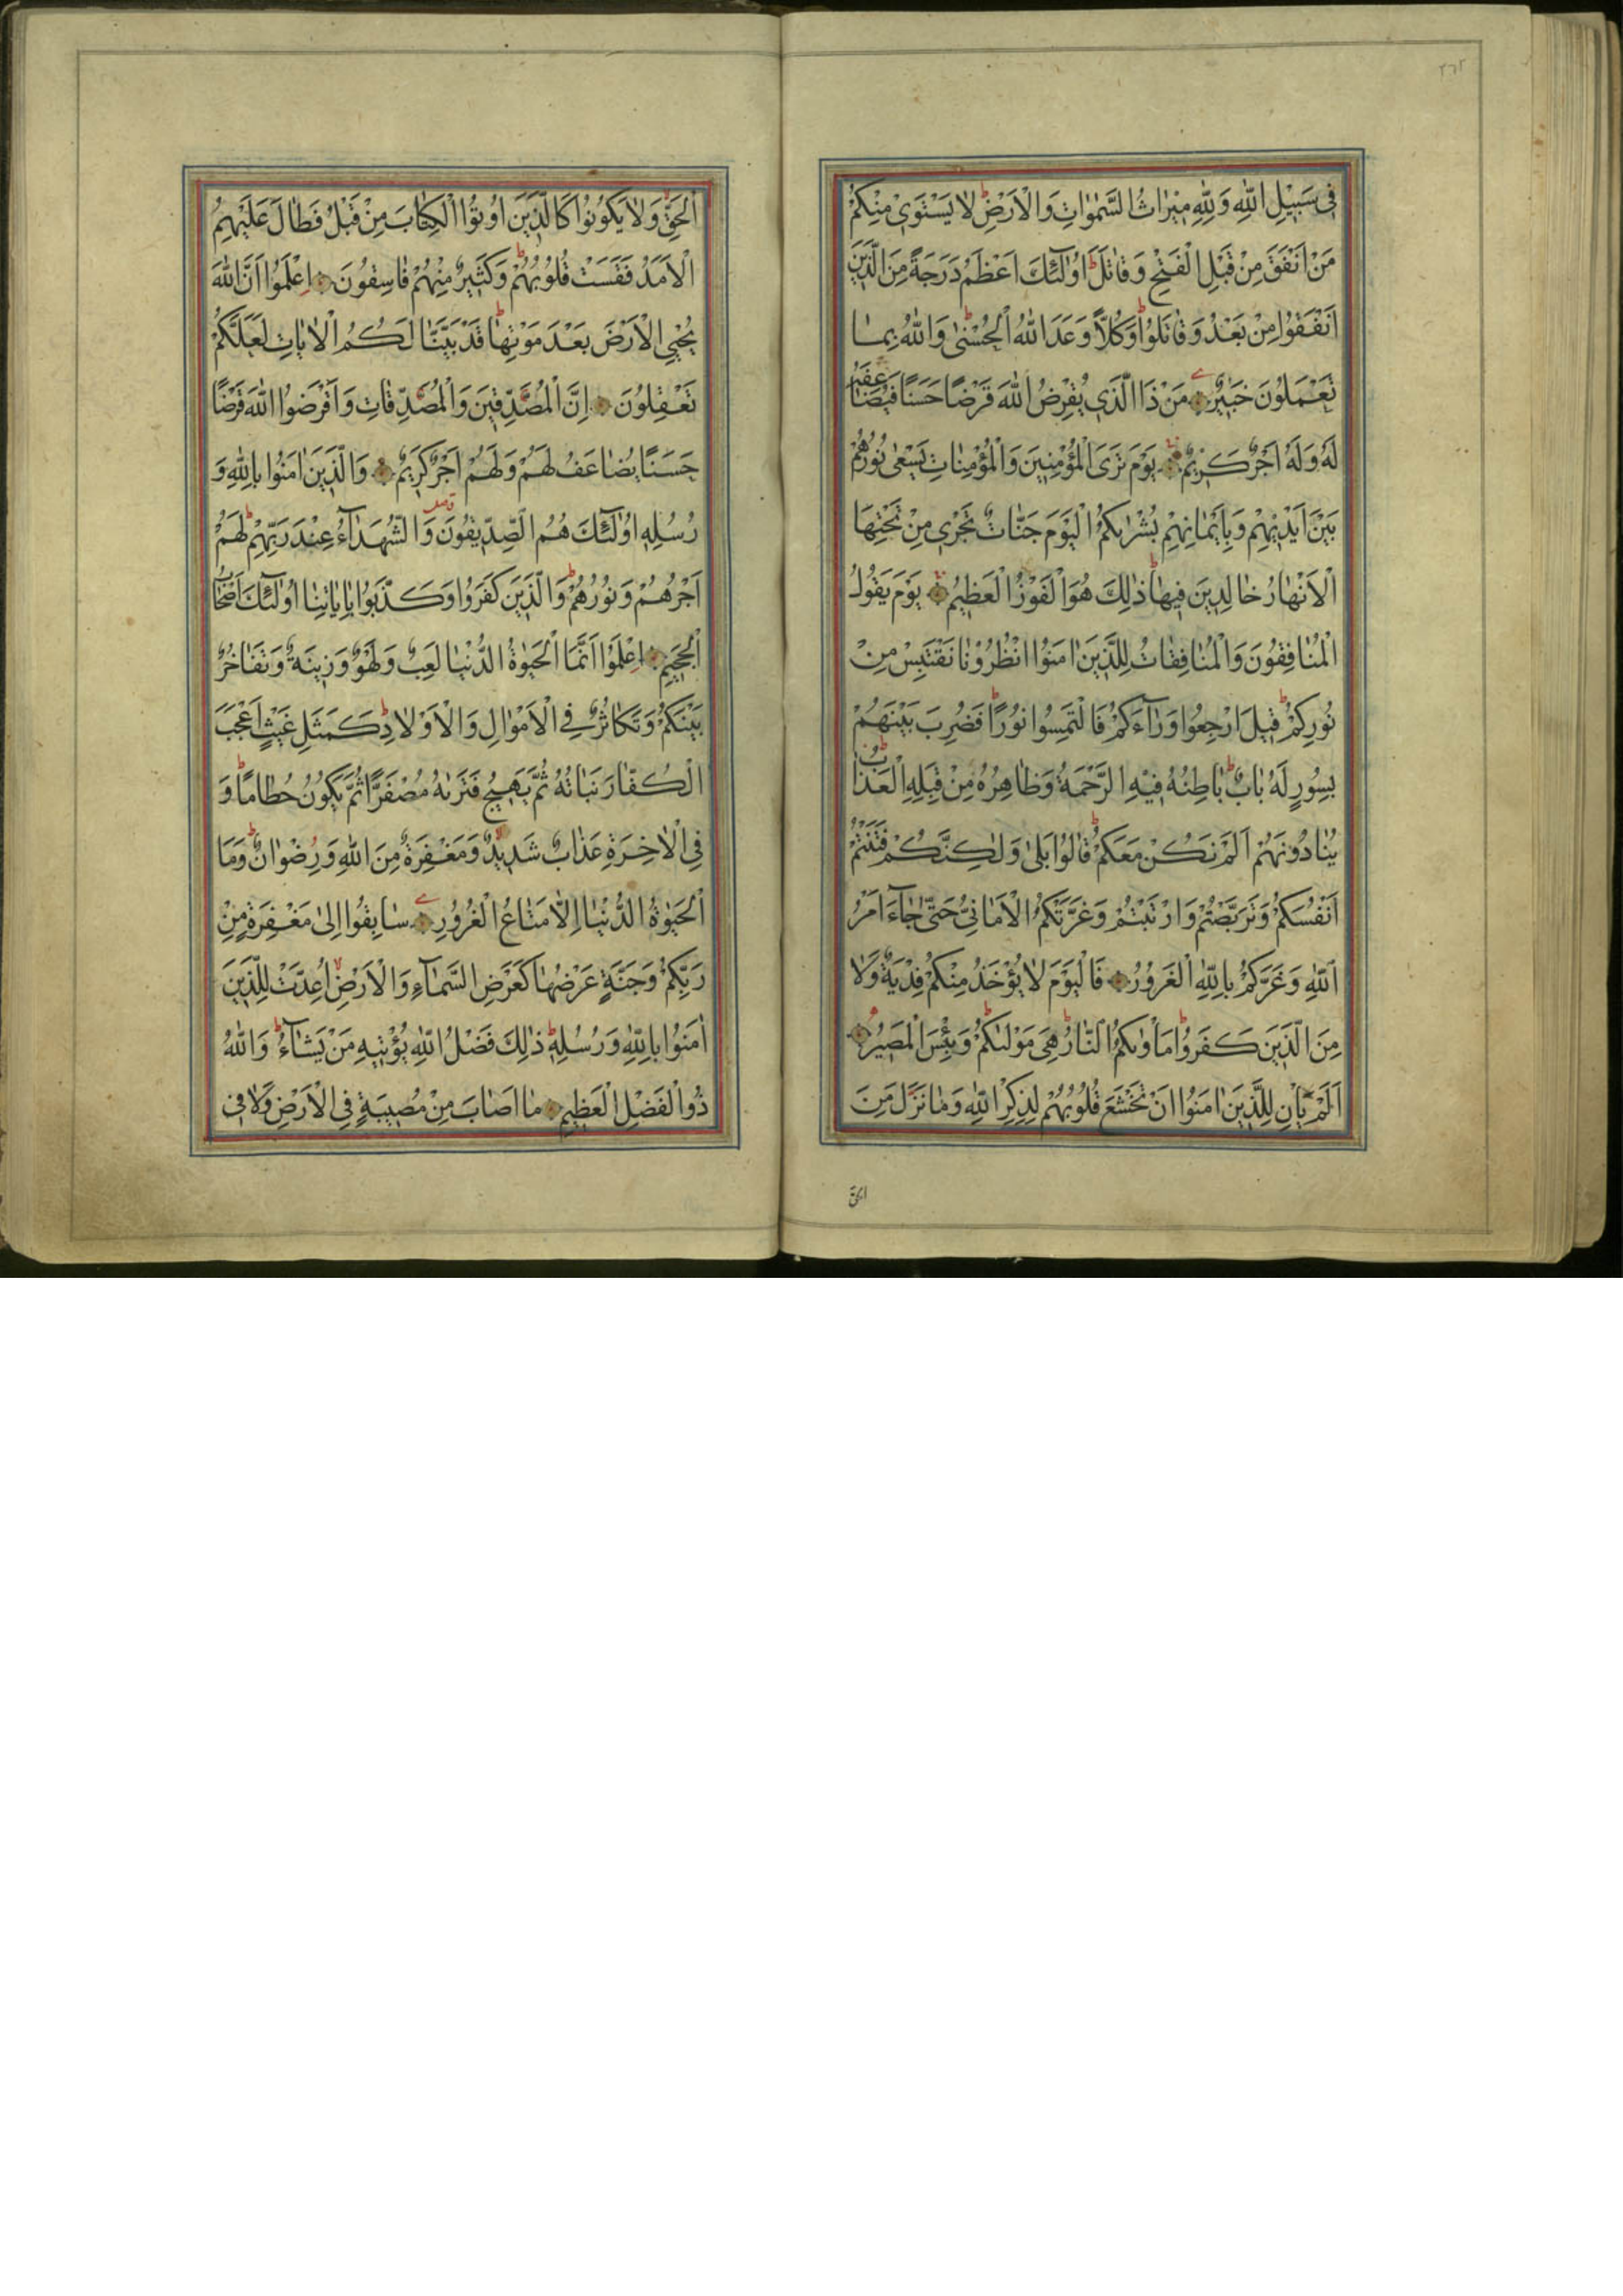 ٣٦٢
فِى سَبِيلِ اللّٰهِ وَلِلّٰهِ مِيرَاثُ السَّمٰوَاتِ وَالْاَرْضِ لَا يَسْتَوِى مِنْكُمْ
مَنْ اَنْفَقَ مِنْ قَبْلِ الْفَتْحِ وَقَاتَلَ اُولٰٓئِكَ اَعْظَمُ دَرَجَةً مِنَ الَّذِينَ
اَنْفَقُوا مِنْ بَعْدُ وَقَاتَلُوا وَكُلًّا وَعَدَ اللّٰهُ الْحُسْنٰى وَاللّٰهُ بِمَا
تَعْمَلُونَ خَبِيرٌ مَنْ ذَا الَّذِى يُقْرِضُ اللّٰهَ قَرْضًا حَسَنًا فَيُضَاعِفَهُ
لَهُ وَلَهُ اَجْرٌ كَرِيمٌ يَوْمَ تَرَى الْمُؤْمِنِينَ وَالْمُؤْمِنَاتِ يَسْعٰى نُورُهُمْ
بَيْنَ اَيْدِيهِمْ وَبِاَيْمَانِهِمْ بُشْرٰيكُمُ الْيَوْمَ جَنَّاتٌ تَجْرِى مِنْ تَحْتِهَا
الْاَنْهَارُ خَالِدِينَ فِيهَا ذٰلِكَ هُوَ الْفَوْزُ الْعَظِيمُ يَوْمَ يَقُولُ
الْمُنَافِقُونَ وَالْمُنَافِقَاتُ لِلَّذِينَ اٰمَنُوا انْظُرُونَا نَقْتَبِسْ مِنْ
نُورِكُمْ قِيلَ ارْجِعُوا وَرَآءَكُمْ فَالْتَمِسُوا نُورًا فَضُرِبَ بَيْنَهُمْ
بِسُورٍ لَهُ بَابٌ بَاطِنُهُ فِيهِ الرَّحْمَةُ وَظَاهِرُهُ مِنْ قِبَلِهِ الْعَذَابُ
يُنَادُونَهُمْ اَلَمْ نَكُنْ مَعَكُمْ قَالُوا بَلٰى وَلٰكِنَّكُمْ فَتَنْتُمْ
اَنْفُسَكُمْ وَتَرَبَّصْتُمْ وَارْتَبْتُمْ وَغَرَّتْكُمُ الْاَمَانِىُّ حَتّٰى جَآءَ اَمْرُ
اللّٰهِ وَغَرَّكُمْ بِاللّٰهِ الْغَرُورُ فَالْيَوْمَ لَا يُؤْخَذُ مِنْكُمْ فِدْيَةٌ وَلَا
مِنَ الَّذِينَ كَفَرُوا مَاْوٰيكُمُ النَّارُ هِىَ مَوْلٰيكُمْ وَبِئْسَ الْمَصِيرُ
اَلَمْ يَاْنِ لِلَّذِينَ اٰمَنُوا اَنْ تَخْشَعَ قُلُوبُهُمْ لِذِكْرِ اللّٰهِ وَمَا نَزَلَ مِنَ
الحق
الْحَقِّ وَلَا يَكُونُوا كَالَّذِينَ اُوتُوا الْكِتَابَ مِنْ قَبْلُ فَطَالَ عَلَيْهِمُ
الْاَمَدُ فَقَسَتْ قُلُوبُهُمْ وَكَثِيرٌ مِنْهُمْ فَاسِقُونَ اِعْلَمُوا اَنَّ اللّٰهَ
يُحْيِى الْاَرْضَ بَعْدَ مَوْتِهَا قَدْ بَيَّنَّا لَكُمُ الْاٰيَاتِ لَعَلَّكُمْ
تَعْقِلُونَ اِنَّ الْمُصَّدِّقِينَ وَالْمُصَّدِّقَاتِ وَاَقْرَضُوا اللّٰهَ قَرْضًا
حَسَنًا يُضَاعَفُ لَهُمْ وَلَهُمْ اَجْرٌ كَرِيمٌ وَالَّذِينَ اٰمَنُوا بِاللّٰهِ وَ
رُسُلِهِ اُولٰٓئِكَ هُمُ الصِّدِّيقُونَ وَالشُّهَدَآءُ عِنْدَ رَبِّهِمْ لَهُمْ
اَجْرُهُمْ وَنُورُهُمْ وَالَّذِينَ كَفَرُوا وَكَذَّبُوا بِاٰيَاتِنَا اُولٰٓئِكَ اَصْحَابُ
الْجَحِيمِ اِعْلَمُوا اَنَّمَا الْحَيٰوةُ الدُّنْيَا لَعِبٌ وَلَهْوٌ وَزِينَةٌ وَتَفَاخُرٌ
بَيْنَكُمْ وَتَكَاثُرٌ فِى الْاَمْوَالِ وَالْاَوْلَادِ كَمَثَلِ غَيْثٍ اَعْجَبَ
الْكُفَّارَ نَبَاتُهُ ثُمَّ يَهِيجُ فَتَرٰيهُ مُصْفَرًّا ثُمَّ يَكُونُ حُطَامًا وَ
فِى الْاٰخِرَةِ عَذَابٌ شَدِيدٌ وَمَغْفِرَةٌ مِنَ اللّٰهِ وَرِضْوَانٌ وَمَا
الْحَيٰوةُ الدُّنْيَا اِلَّا مَتَاعُ الْغُرُورِ سَابِقُوا اِلٰى مَغْفِرَةٍ مِنْ
رَبِّكُمْ وَجَنَّةٍ عَرْضُهَا كَعَرْضِ السَّمَآءِ وَالْاَرْضِ اُعِدَّتْ لِلَّذِينَ
اٰمَنُوا بِاللّٰهِ وَرُسُلِهِ ذٰلِكَ فَضْلُ اللّٰهِ يُؤْتِيهِ مَنْ يَشَآءُ وَاللّٰهُ
ذُو الْفَضْلِ الْعَظِيمِ مَا اَصَابَ مِنْ مُصِيبَةٍ فِى الْاَرْضِ وَلَا فِى